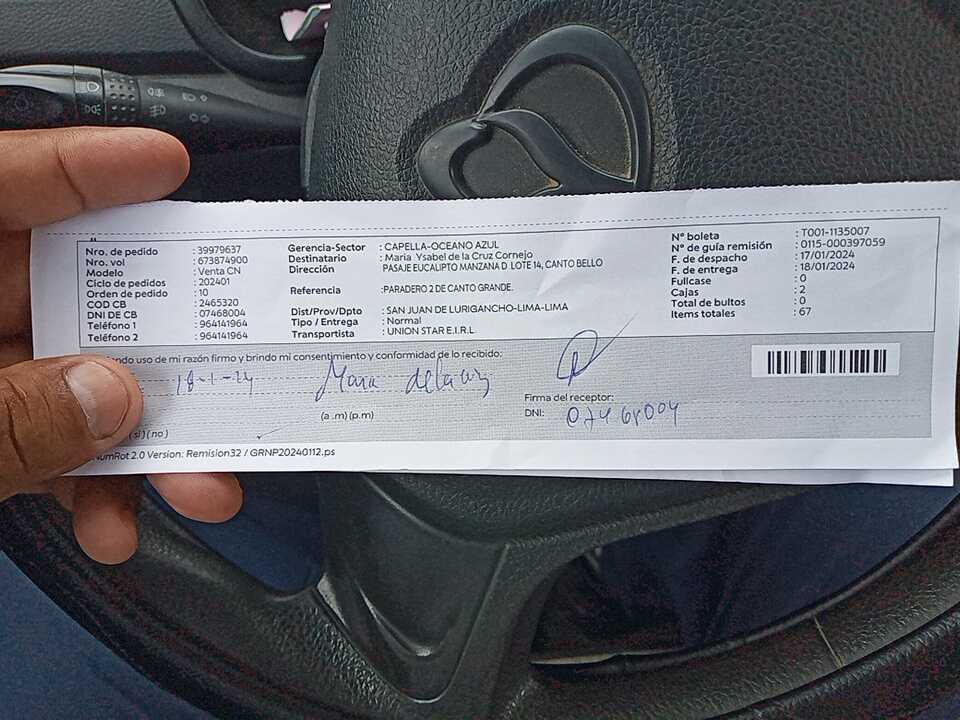 Nro. de pedido : 39979637
Nro. vol : 673874900
Modelo : Venta CN
Ciclo de pedidos : 202401
Orden de pedido : 10
COD CB : 2465320
DNI DE CB : 07468004
Teléfono 1 : 964141964
Teléfono 2 : 964141964
Gerencia-Sector : CAPELLA-OCEANO AZUL
Destinatario : Maria Ysabel de la Cruz Cornejo
Dirección PASAJE EUCALIPTO MANZANA D LOTE 14, CANTO BELLO
Referencia : PARADERO 2 DE CANTO GRANDE.
Dist/Prov/Dpto : SAN JUAN DE LURIGANCHO-LIMA-LIMA
Tipo / Entrega : Normal
Transportista : UNION STAR E.I.R.L
N° boleta : T001-1135007
N° de guía remisión : 0115-000397059
F. de despacho : 17/01/2024
F. de entrega : 18/01/2024
Fullcase : 0
Cajas : 2
Total de bultos : 0
Items totales : 67
uso de mi razón firmo y brindo mi consentimiento y conformidad de lo recibido:
18-1-24 Maria dela Cruz
(a .m) (p.m)
Firma del receptor:
DNI: 07468004
(si) (no)
2.0 Version: Remision32 / GRNP20240112.ps